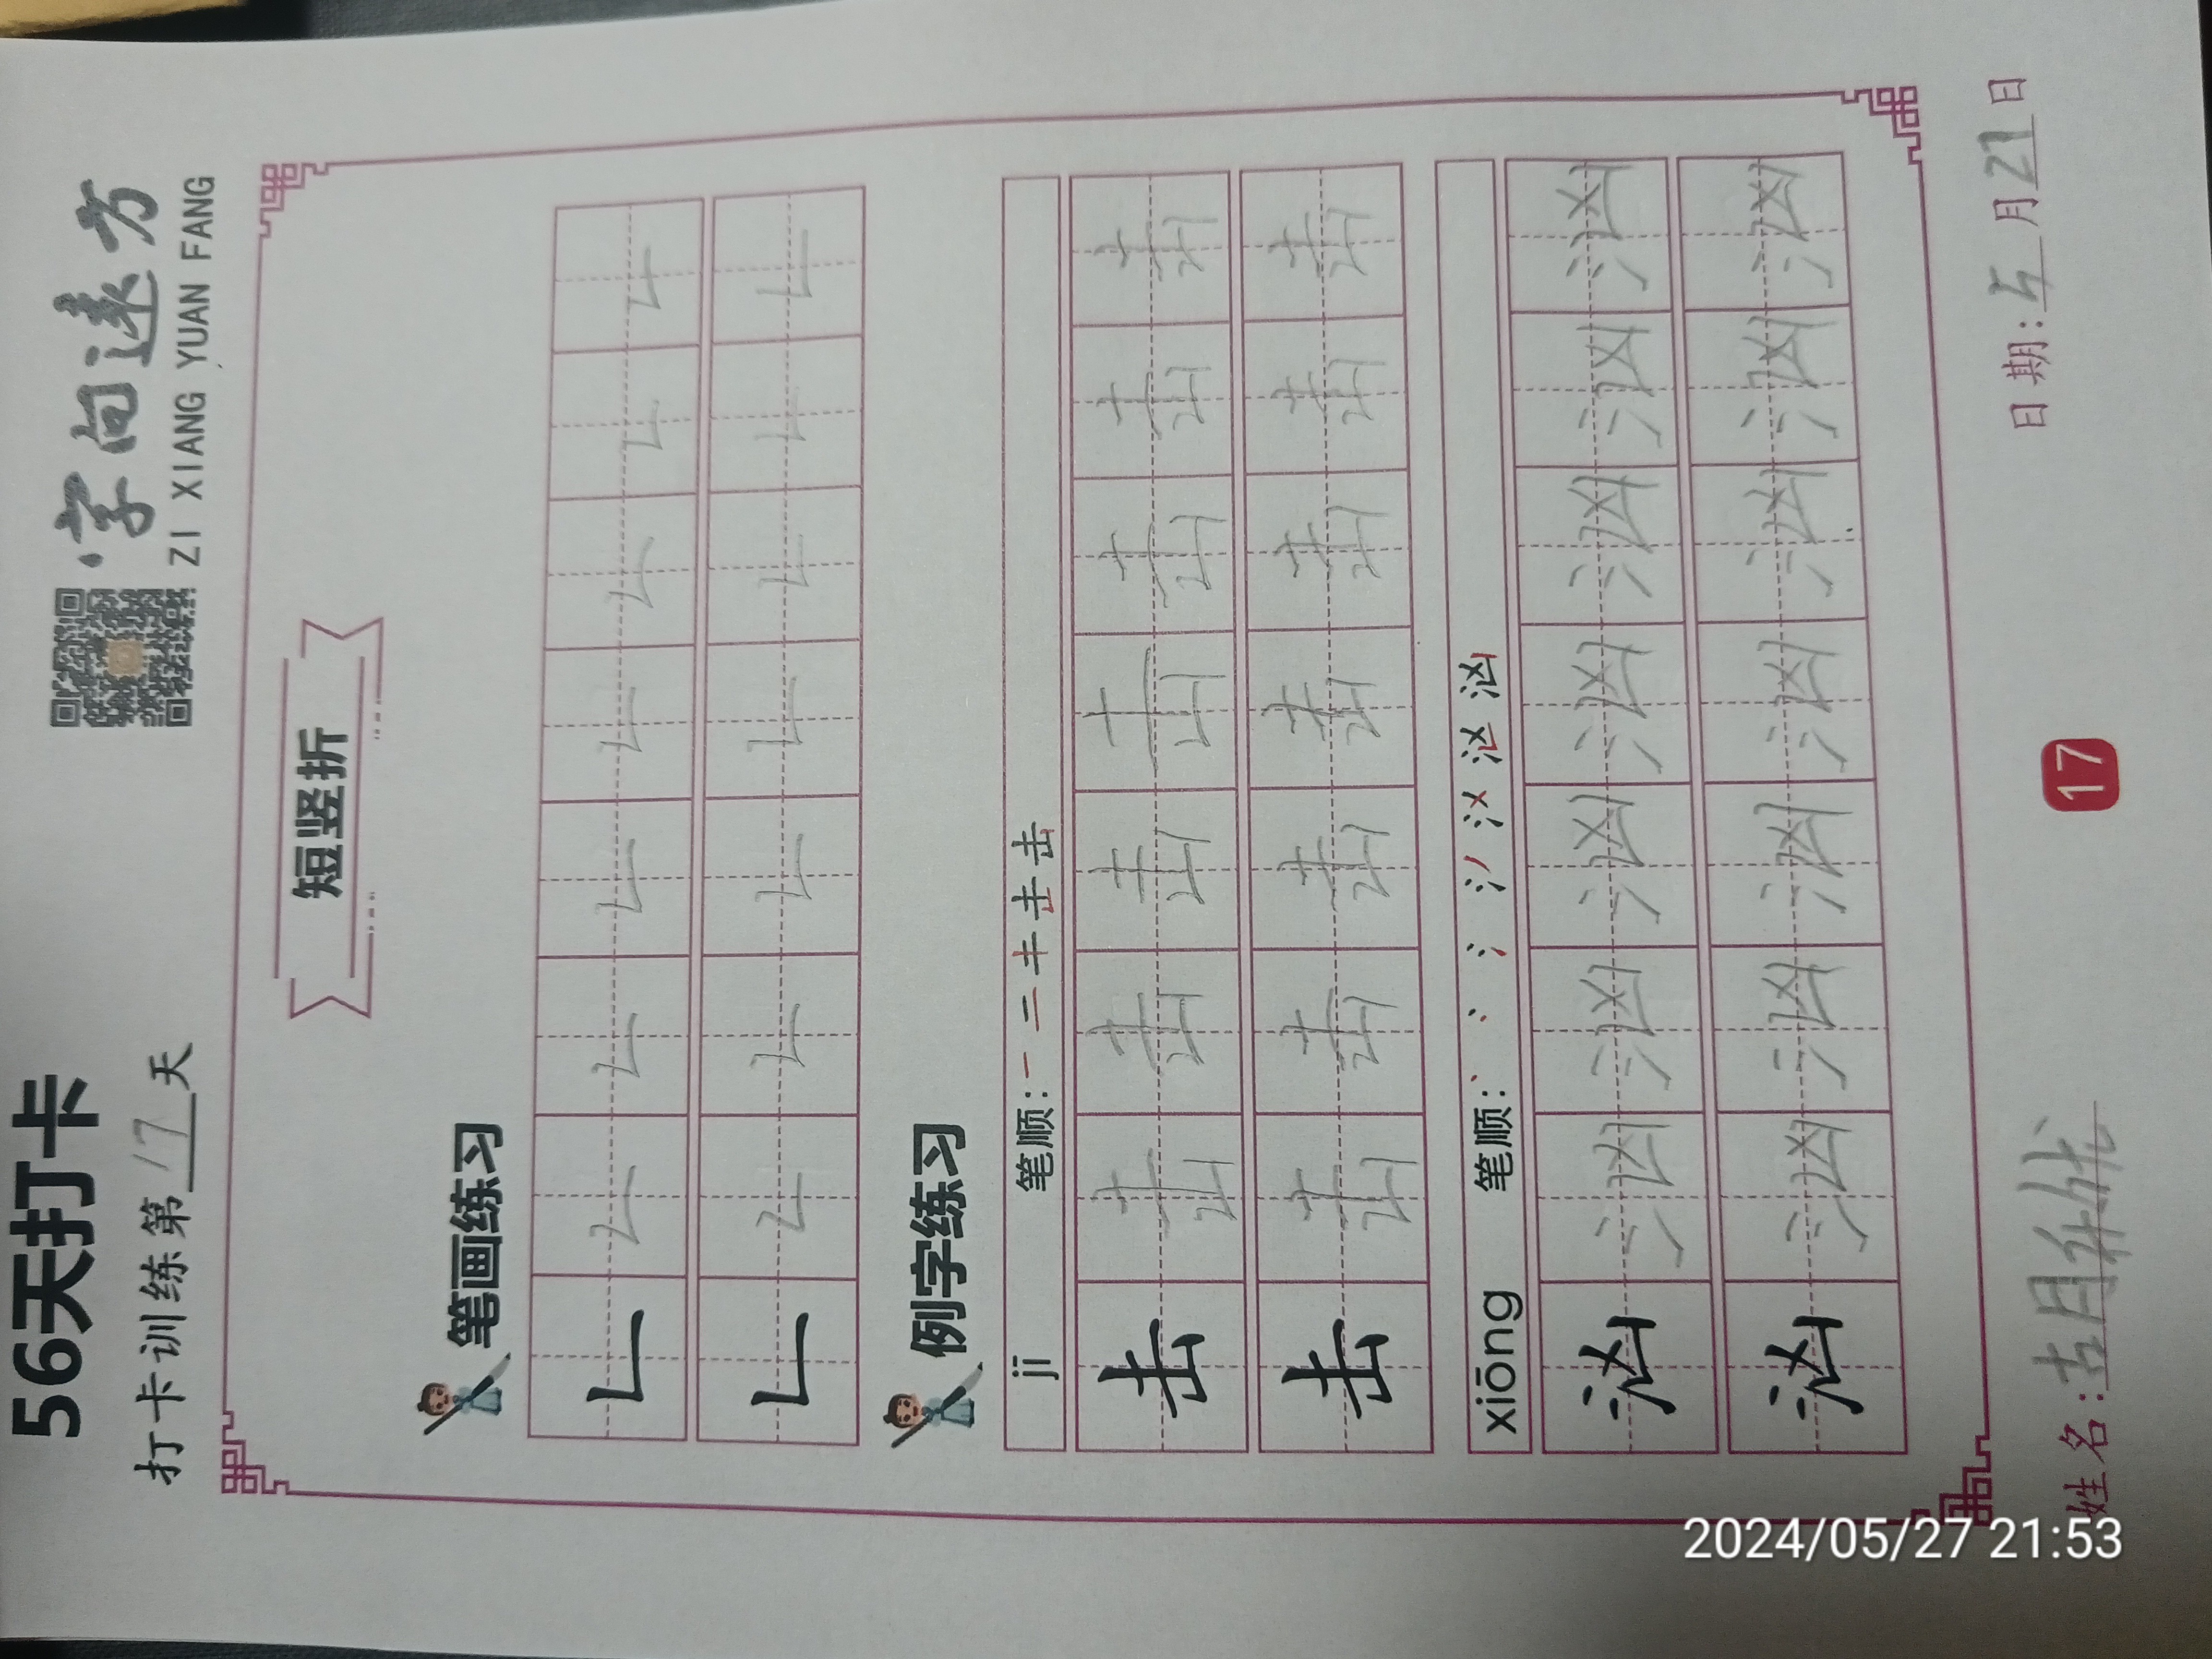 56天打卡
字向远方
ZI XIANG YUAN FANG
打卡训练第17天
短竖折
笔画练习
例字练习
jī 笔顺:一 二 キ 击 击
击 击 击 击 击 击 击 击
击 击 击 击 击 击 击 击
xiōng 笔顺:丶 冫 氵 汹 汹
汹 汹 汹 汹 汹 汹 汹 汹
汹 汹 汹 汹 汹 汹 汹 汹
姓名: 17 日期:5月21日
2024/05/27 21:53